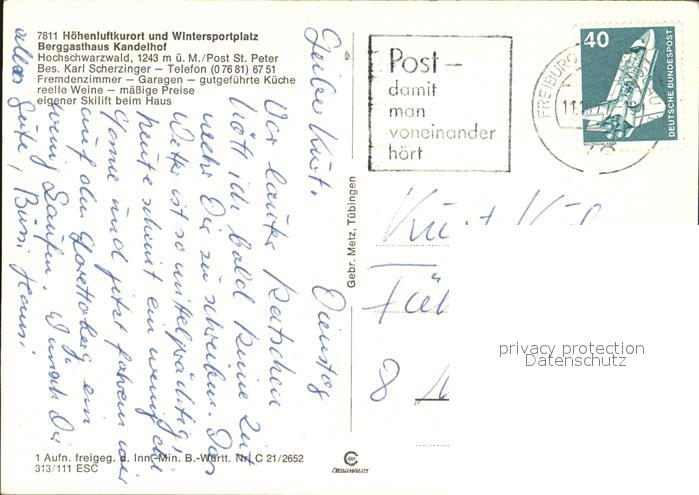 7811 Höhenluftkurort und Wintersportplatz
Berggasthaus Kandelhof
Hochschwarzwald, 1243 m ü. M./Post St. Peter
Bes. Karl Scherzinger — Telefon (0 76 81) 67 51
Fremdenzimmer — Garagen — gutgeführte Küche
reelle Weine — mäßige Preise
eigener Skilift beim Haus
Post—
damit
man
voneinander
hört
FREIBURG
40
DEUTSCHE BUNDESPOST
Dienstag
Lieber Kurt.
Vor lauter Ratschen
hätt ich bald keine Zeit
mehr Dir zu schreiben. Das
Wetter ist so mittelprächtig,
heute scheint ein wenig die
Sonne und jetzt fahren wir
auf den Lorettoberg ein
wenig laufen. Ich wünsch Dir
alles Gute, Bussi,
Gebr. Metz, Tübingen
Kurt
8
privacy protection
Datenschutz
1 Aufn. freigeg. d. Inn.-Min. B.-Württ. Nr. C 21/2652
313/111 ESC